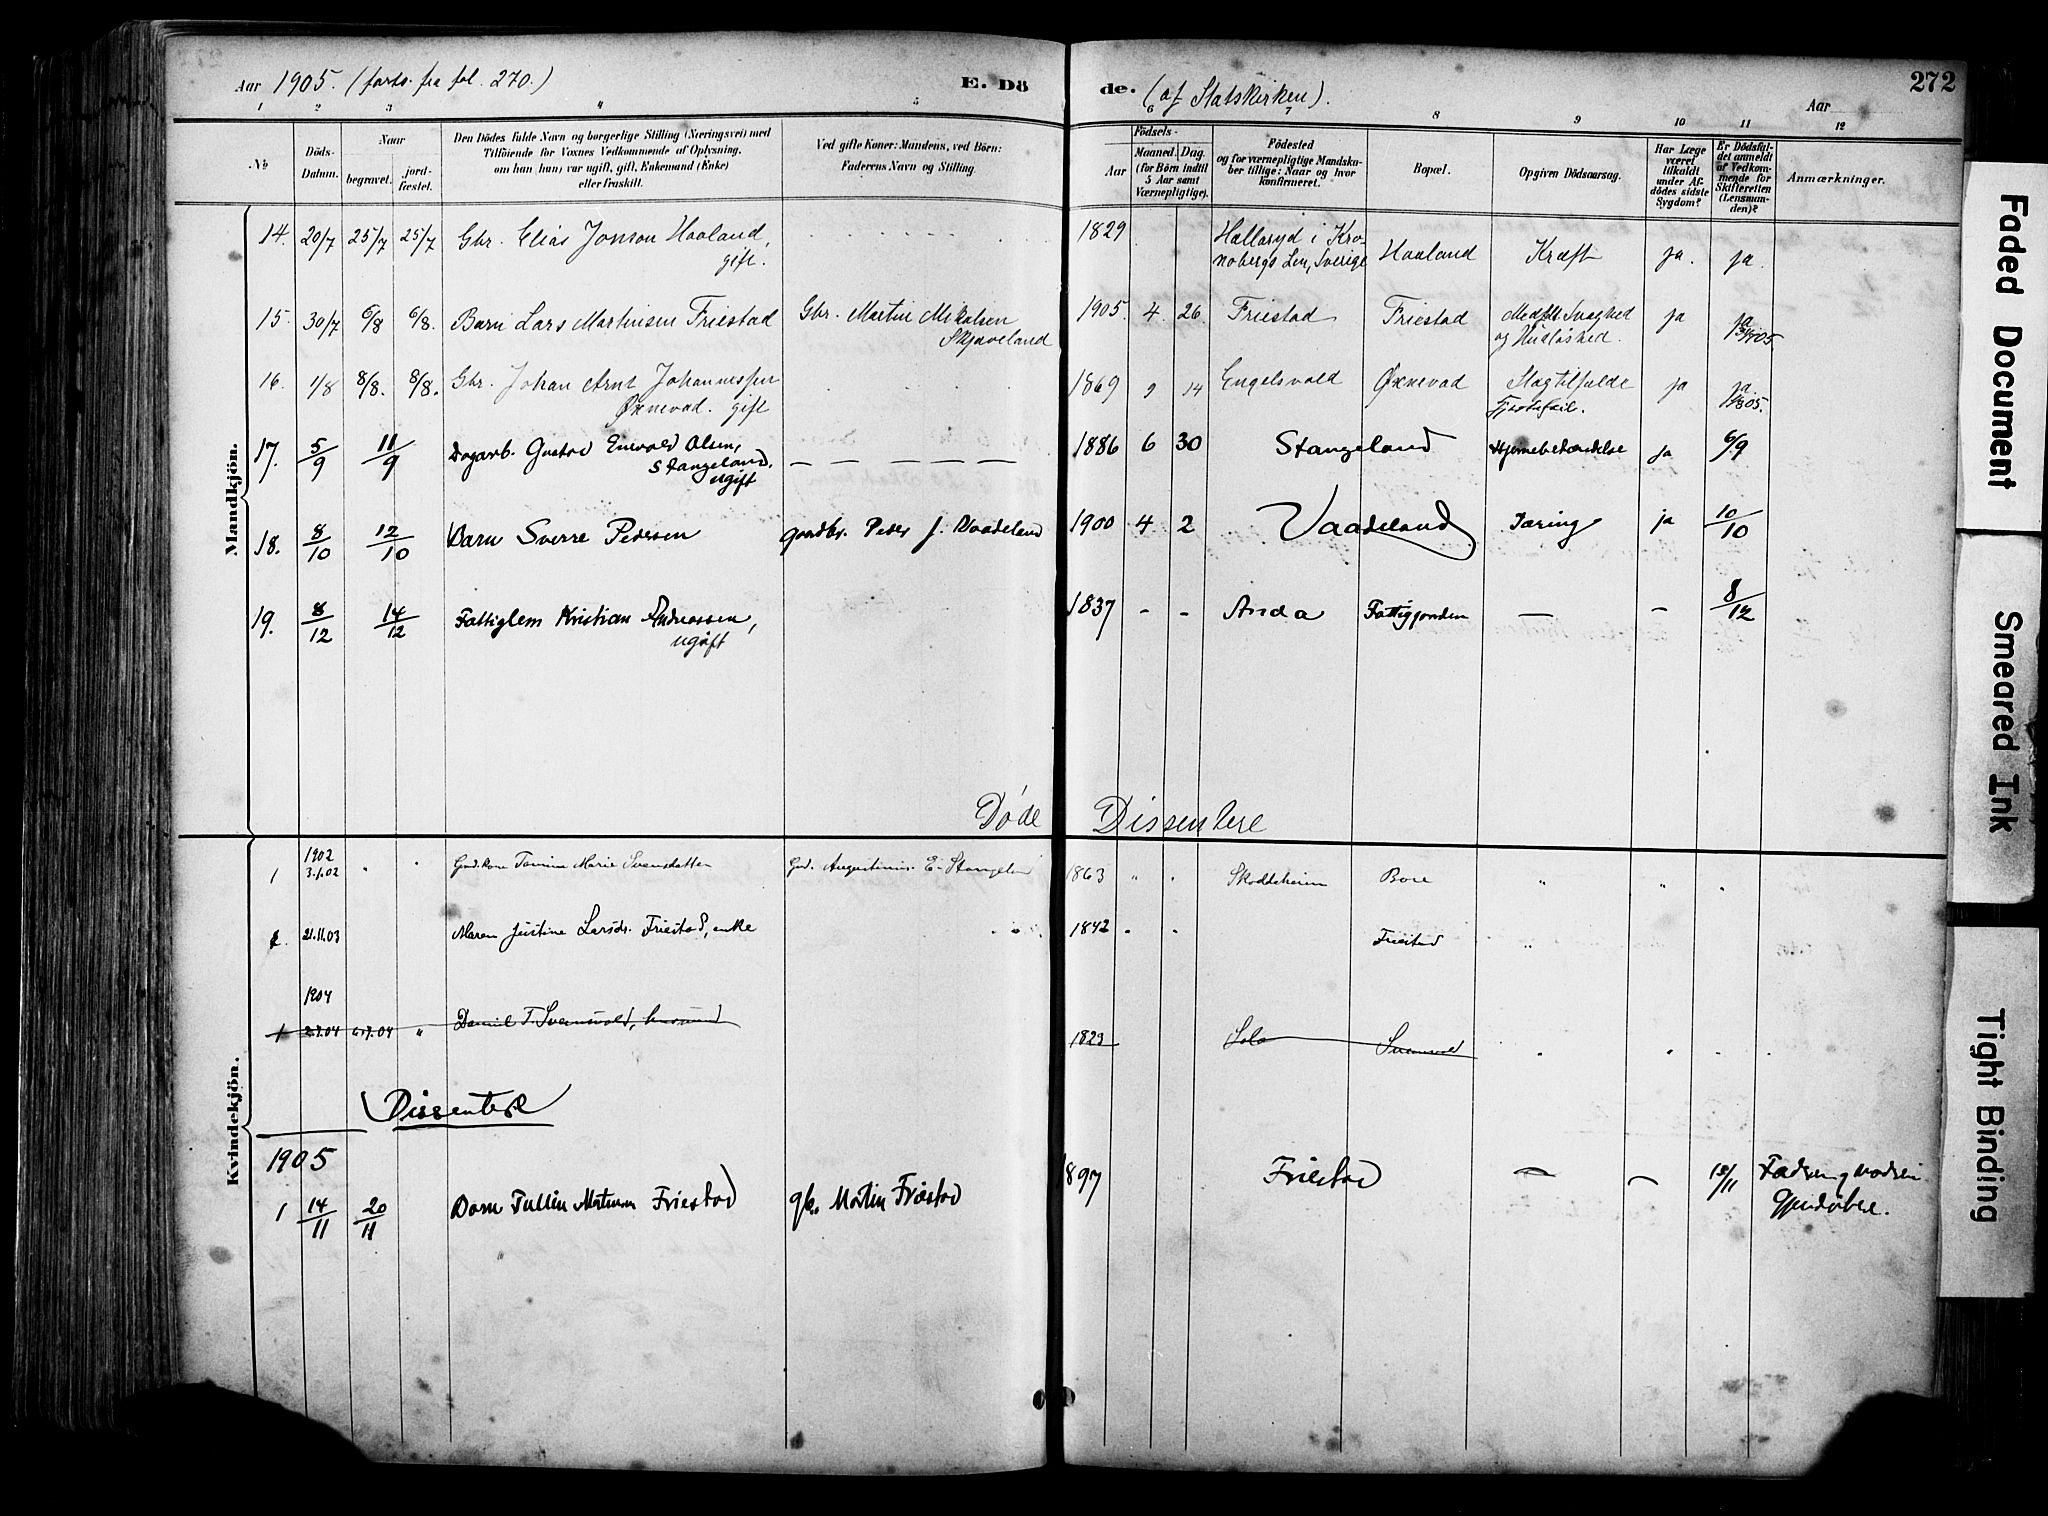 Aar 1905. (forts. fra fol. 270.)
E. Dö
de. (af Statskirken).
Aar
272
1 2 3 4 5 6 7 8 9 10 11 12
No
Döds-Datum.
Naar begravet. jordfæstet.
Den Dödes fulde Navn og borgerlige Stilling (Næringsvei) med Tilföiende for Voxnes Vedkommende af Oplysning. om han (hun) var ugift, gift, Enkemand (Enke) eller fraskilt.
Ved gifte Koner: Mandens, ved Börn: Faderens Navn og Stilling.
Födsels-
Aar
Maaned. Dag. (for Börn indtil 5 Aar samt Værnepligtige).
Födested og for værnepligtige Mandskaber tillige: Naar og hvor konfirmeret.
Bopæl.
Opgiven Dödsaarsag.
Har Læge været tilkaldt under Afdödes sidste Sygdom?
Er Dödsfaldet anmeldt af Vedkommende for Skifteretten (Lensmanden)?
Anmærkninger.
Mandkjön.
14. 20/7 25/7 25/7 Gbr. Elias Jonson Haaland, gift. 1829 Hallaryd i Kronobergs Len, Sverige Haaland Kræft ja. ja.
15. 30/7 6/8 6/8. Barn Lars Martinsen Friestad Gbr. Martin Mikalsen Skjæveland 1905. 4. 26. Friestad Friestad Medfdt Svaghed og ja ja
16. 1/8 8/8. 8/8. Gbr. Johan Arnt Johannessen Øxnevad. gift 1869 9 14 Engelsvold Øxnevad Slagtilfælde Hjertefeil. ja ja
17. 5/9 11/9 Dagarb. Gustav Enevald Olsen, Stangeland, ugift 1886 6 30 Stangeland Hjernebetændelse ja 6/9
18. 8/10 12/10 Barn Sverre Pedersen gaardbr. Peder J. Vaadeland 1900 4 2 Vaadeland Tæring ja 10/10
19. 8/12 14/12 Fattiglem Kristian Andreassen, ugift 1837 - - Anda Fattiggaarden — - 8/12
Døde Dissentere
Kvindekjön.
1 1902 3.1.02 " " Gmd. kone Tomine Marie Svensdatter Gmd. Augustinus E. Stangeland 1863 " " Bore " " "
2. 21.11.03 Maren Justine Larsdr. Friestad, enke 1842 " " Friestad "
1904
1 2.7.04 6.7.04 " Daniel T. Svensvold, husmand 1823 Sola Svensvold
Dissentere
1905
1 14/11 20/11 Barn Tullin Martinsen Friestad gbr. Martin Friestad 1897 Friestad — - 15/11 Fadren og Modren Gjendøbere.
Faded Document
Smeared Ink
Tight Binding